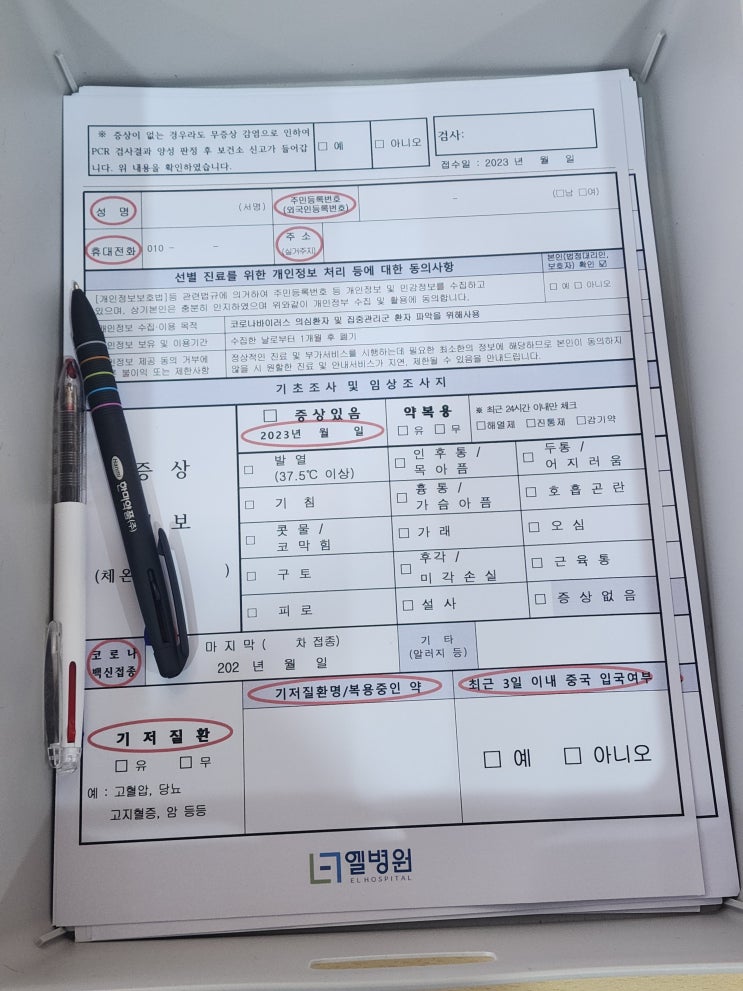 ※ 증상이 없는 경우라도 무증상 감염으로 인하여
PCR 검사결과 양성 판정 후 보건소 신고가 들어갑
니다. 위 내용을 확인하였습니다.
□ 예 □ 아니오
검사:
접수일 : 2023 년 월 일
성 명 (서명) 주민등록번호 (외국인등록번호) - (□남 □여)
휴대전화 010 - - 주 소 (실거주지)
선별 진료를 위한 개인정보 처리 등에 대한 동의사항
본인(법정대리인,
보호자) 확인 ☑
[개인정보보호법]등 관련법규에 의거하여 주민등록번호 등 개인정보 및 민감정보를 수집하고
있으며, 상기본인은 충분히 인지하였으며 위와같이 개인정부 수집 및 활용에 동의합니다.
□ 예 □ 아니오
인정보 수집·이용 목적 코로나바이러스 의심환자 및 집중관리군 환자 파악을 위해사용
인정보 보유 및 이용기간 수집한 날로부터 1개월 후 폐기
인정보 제공 동의 거부에
불이익 또는 제한사항
정상적인 진료 및 부가서비스를 시행하는데 필요한 최소한의 정보에 해당하므로 본인이 동의하지
않을 시 원활한 진료 및 안내서비스가 지연, 제한될 수 있음을 안내드립니다.
기초조사 및 임상조사지
증 상
보
(체온 )
□ 증상있음
2023년 월 일
약복용
□ 유 □ 무
※ 최근 24시간 이내만 체크
□해열제 □진통제 □감기약
□ 발 열
(37.5℃ 이상)
□ 인 후 통 /
목 아 픔
□ 두 통 /
어 지 러 움
□ 기 침
□ 흉 통 /
가 슴 아 픔
□ 호 흡 곤 란
□ 콧 물 /
코 막 힘
□ 가 래
□ 오 심
□ 구 토
□ 후각 /
미 각 손 실
□ 근 육 통
□ 피 로
□ 설 사
□ 증 상 없 음
코 로 나
백신접종
마 지 막 ( 차 접종)
202 년 월 일
기 타
(알러지 등)
기 저 질 환
□ 유 □ 무
예 : 고혈압, 당뇨
고지혈증, 암 등등
기저질환명/복용중인 약
최근 3일 이내 중국 입국여부
□ 예 □ 아니오
엘병원
EL HOSPITAL
한미약품(주)